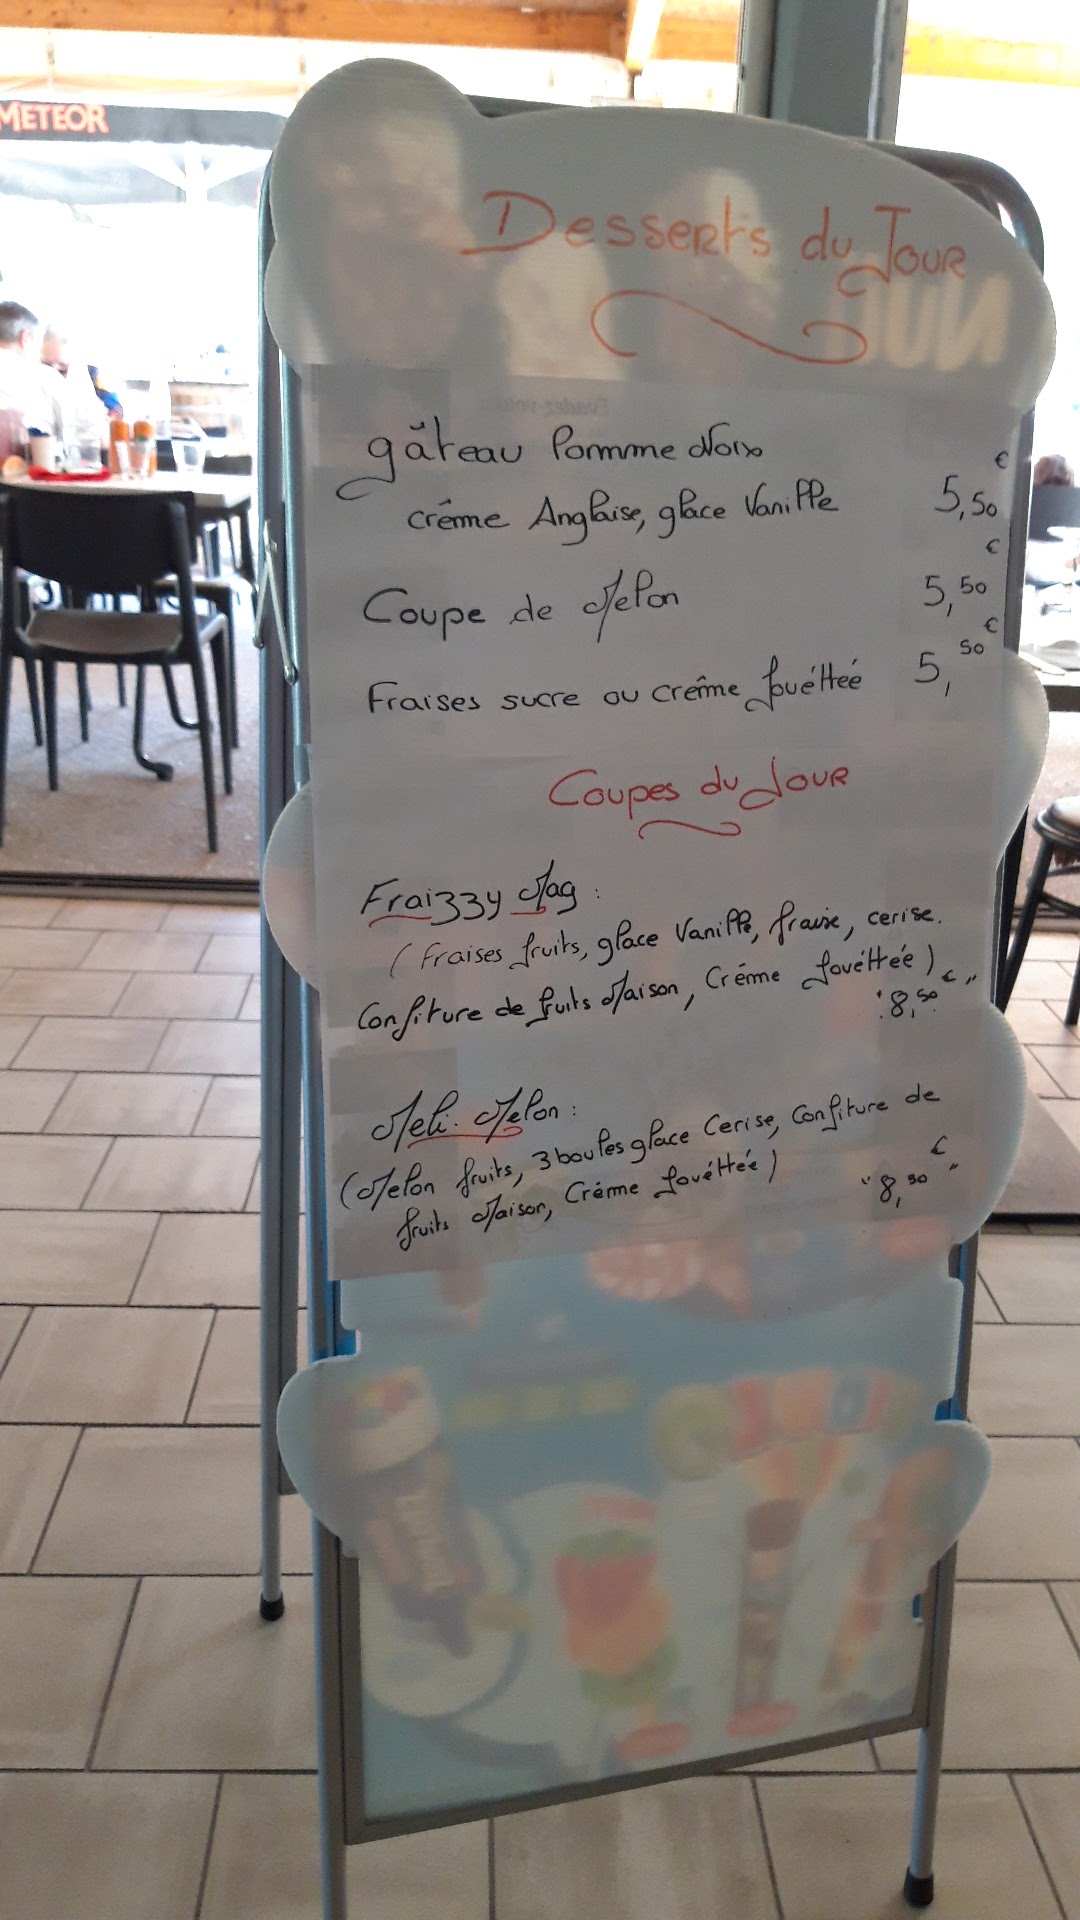 METEOR
Desserts du Jour
gâteau Pomme Noix
crême Anglaise, glace Vanille 5,50 €
Coupe de Melon 5,50 €
Fraises sucre ou crême fouétteé 5,50 €
Coupes du Jour
Fraizzy Mag :
(Fraises fruits, glace Vanille, fraise, cerise.
Confiture de fruits Maison, Créme fouéttéé)
"8,50 €"
Meli. Melon :
(Melon fruits, 3 boules glace Cerise, Confiture de
fruits Maison, Créme fouéttéé)
"8,50 €"